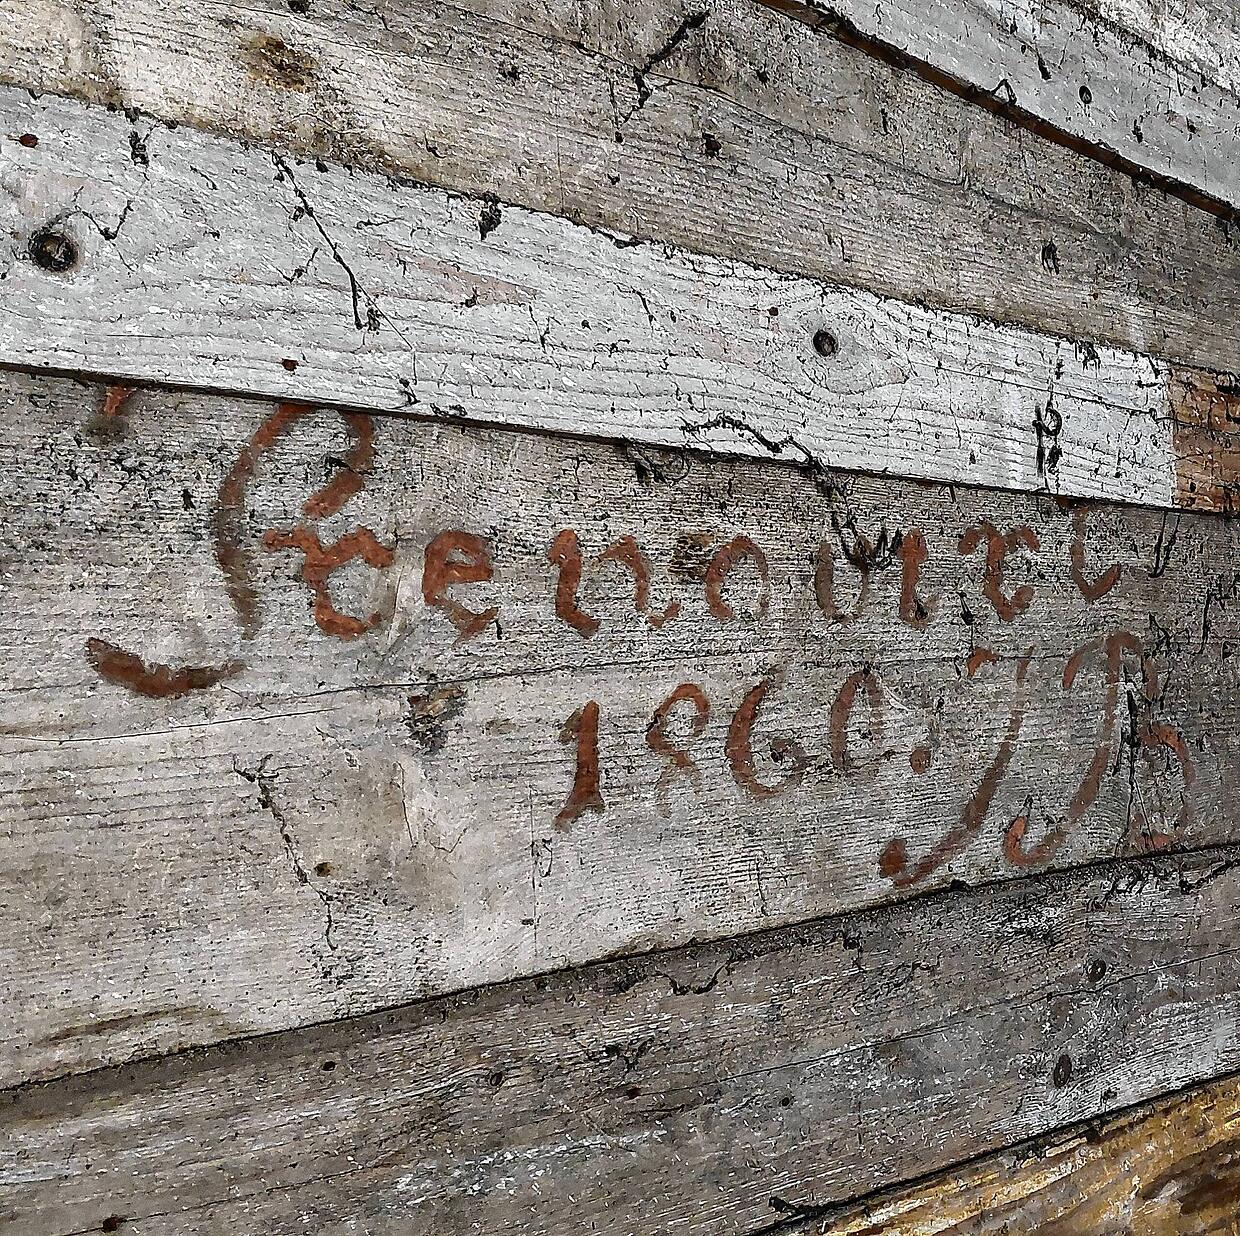 Renovirt
1860. J B